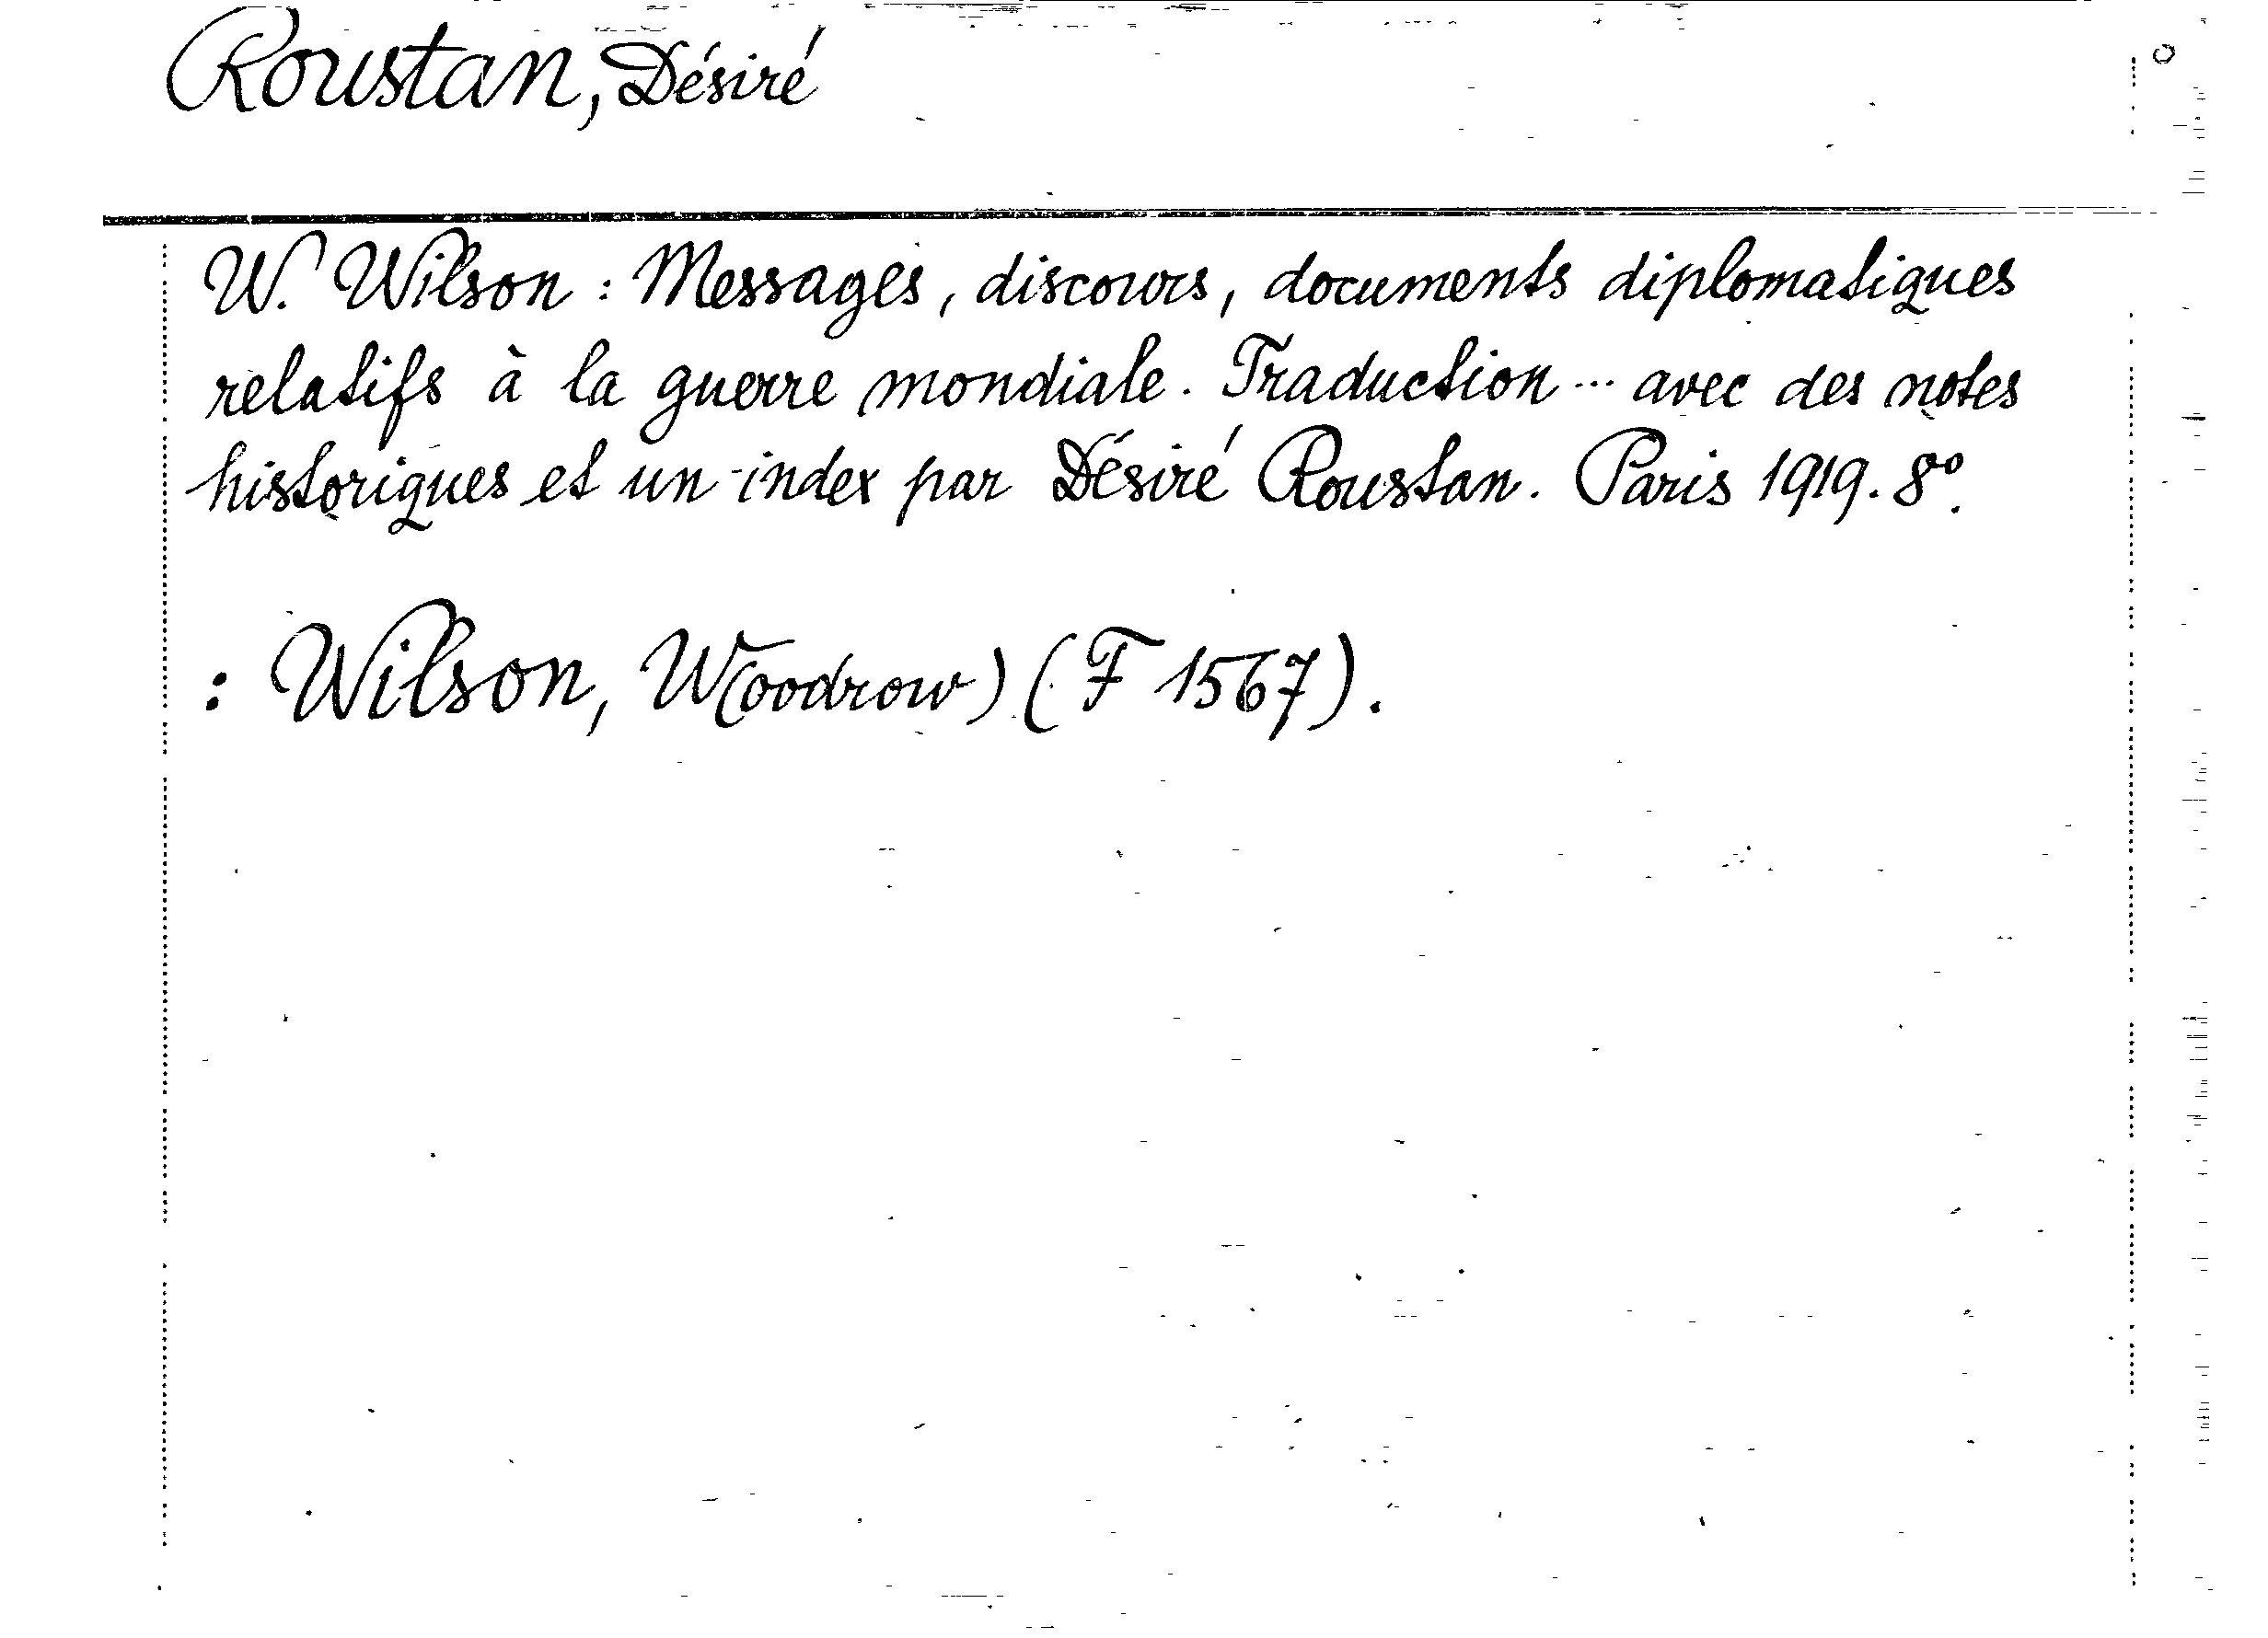 Roustan, Désiré
W. Wilson : Messages, discours, documents diplomatiques
relatifs à la guerre mondiale. Traduction ... avec des notes
historiques et un index par Désiré Roustan. Paris 1919. 8°.
: Wilson, W(oodrow) (F 1567).